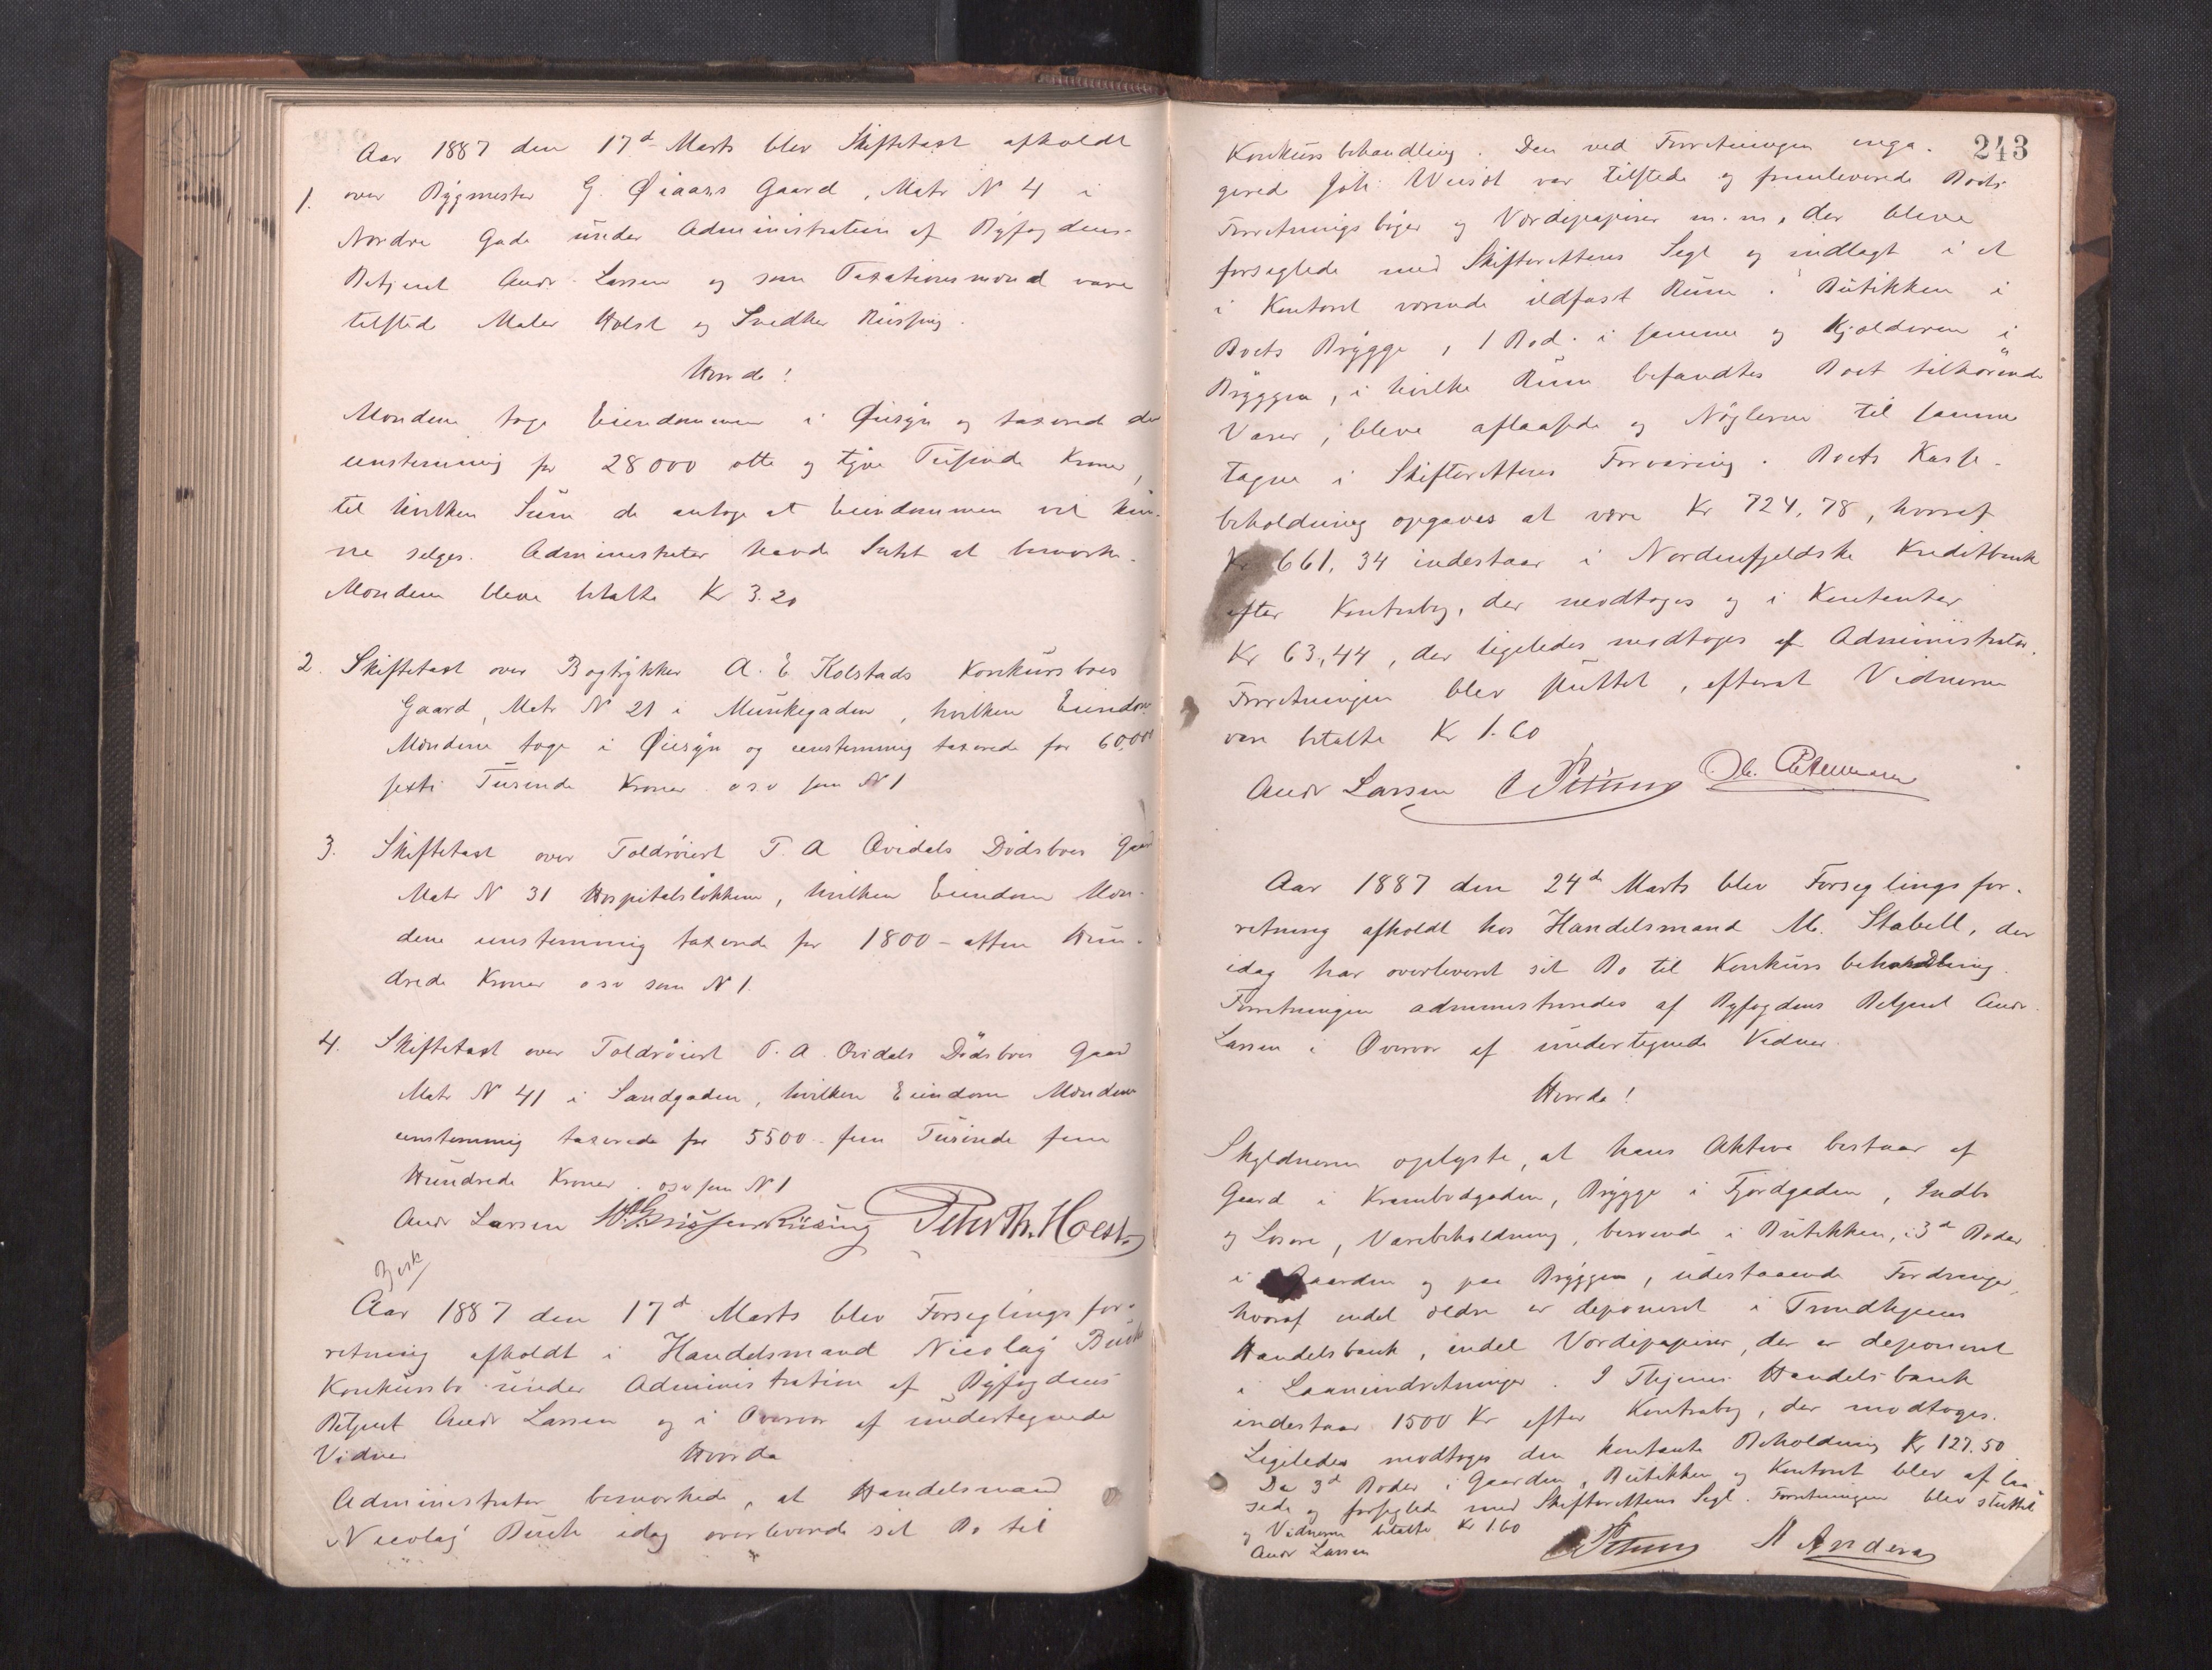 Aar 1887 den 17d Marts blev Skiftetaxt afholdt
1. over Bygmester G. Øiaass Gaard, Matr N 4 i
Nordre Gade under Administration af Byfogdens
Betjent Andr. Larsen og som Taxationsmænd vare
tilstede Maler Holst og Snedker Riissing.
Hvorda!
Mændene toge Eiendommen i Øiesyn og taxerede den
enstemmig for 28000 otte og tyve Tusinde Kroner,
til hvilken Sum de antoge at Eiendommen vil kun-
ne selges. Administrator havde Intet at bemærke.
Mændene bleve betalte Kr 3.20
2. Skiftetaxt over Bogtrykker A. E Kolstads Konkursboes
Gaard, Matr N 21 i Munkegaden, hvilken Eiendom
Mændene toge i Øiesyn og enstemmig taxerede for 60,000
sexti Tusende Kroner o s v som N 1
3. Skiftetaxt over Toldrøiert T. A Qvidals Dødsboes Gaard
Matr N 31 Hospitalsløkken, hvilken Eiendom Mæn-
dene enstemmig taxerede for 1800 - atten Hun-
drede Kroner o s v som N 1.
4. Skiftetaxt over Toldrøiert T. A. Qvidals Dødsboes Gaard
Matr N 41 i Sandgaden, hvilken Eiendom Mændene
enstemmig taxerede for 5500 - fem Tusinde fem
Hundrede Kroner. o s v som N 1
Andr Larsen Peter Th. Holst
Besk
Aar 1887 den 17d Marts blev Forseglingsfor-
retning afholdt i Handelsmand Nicolay Buch
Konkursbo under Administration af Byfogdens
Betjent Andr Larsen og i Overvær af undertegnede
Vidner Hvorda
Administrator bemærkede, at Handelsmand
Nicolay Buch idag overleverede sit Bo til
243
Konkursbehandling. Den ved Forretningen enga-
gerede Joh. var tilstede og fremleverede Boets
Forretningsbøger og Værdipapirer m. m, der bleve
forseglede med Skifterettens Segl og indlagt i et
i Kontoret værende ildfast Rum. Butikken i
Boets Brygge, 1 Bod i samme og Kjælderen i
Bryggen, i hvilke Rum befandtes Boet tilhørende
Varer, bleve aflaasede og Nøglerne til samme
tagne i Skifterettens Forvaring. Boets Kasse-
beholdning opgaves at være Kr 724,78, hvoraf
Kr 661,34 indestaar i Nordenfjeldske Kreditbank
efter Kontrabog, der modtoges og i Kontanter
Kr 63,44, der ligeledes modtoges af Administrator.
Forretningen blev sluttet, efterat Vidnerne
vare betalte Kr 1.60
Andr Larsen
Aar 1887 den 24d Marts blev Forseglingsfor-
retning afholdt hos Handelsmand M. Stabell, der
idag har overleveret sit Bo til Konkursbehandling.
Forretningen administreredes af Byfogdens Betjent Andr.
Larsen i Overvær af undertegnede Vidner.
Hvorda!
Skyldneren oplyste, at hans Aktiva bestaar af
Gaard i Krambodgaden, Brygge i Fjordgaden, Indbo
og Løsøre, Varebeholdning, beroende i Butikken, i 3de Boder
i Gaarden og paa Bryggen, udestaaende Fordringer,
hvoraf endel ældre er deponeret i Trondhjems
Handelsbank, endel Værdipapirer, der er deponeret
i Laaneindretninger. I Thjems Handelsbank
indestaar 1500 Kr efter Kontrabog, der modtoges.
Ligeledes modtoges den kontante Beholdning Kr 127.50
De 3de Boder i Gaarden, Butikken og Kontoret blev aflaa-
sede og forseglede med Skifterettens Segl. Forretningen blev sluttet
og Vidnerne betalte Kr 1.60
Andr Larsen